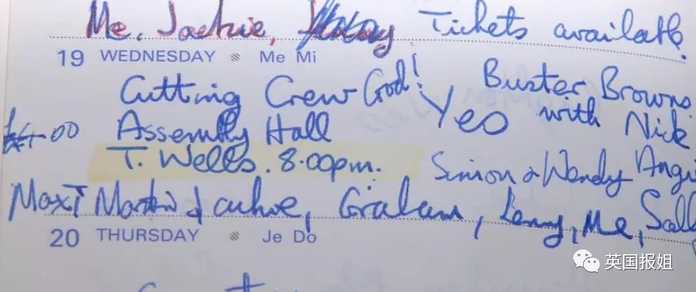 Me, Jackie, Tickets available
19 WEDNESDAY Me Mi
Cutting Crew God! Buster Browns
£ .00 Assembly Hall Yes with Nick
T. Wells. 8.00pm. Simon & Wendy Angi
Max T Martin & Jackie, Graham, Lenny, Me, Sall
20 THURSDAY Je Do
英国报姐